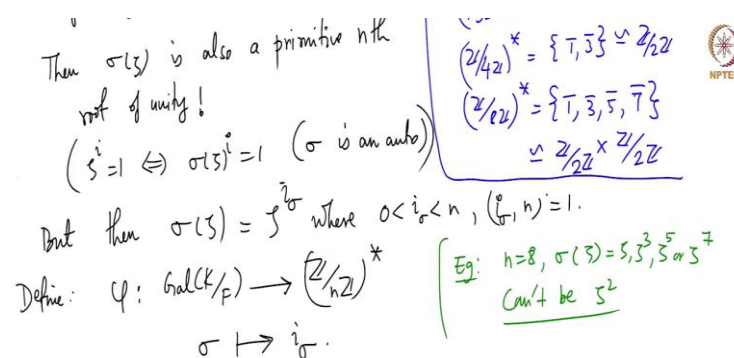 Then σ(ζ) is also a primitive nth
root of unity!
(ζ^i = 1 ⇔ σ(ζ)^i = 1 (σ is an auto))
But then σ(ζ) = ζ^{i_σ} where 0 < i_σ < n, (i_σ, n) = 1.
Define: φ: Gal(K/F) → (ℤ/nℤ)^*
σ ↦ i_σ.
(ℤ/4ℤ)^* = {1̄, 3̄} ≃ ℤ/2ℤ
(ℤ/8ℤ)^* = {1̄, 3̄, 5̄, 7̄}
≃ ℤ/2ℤ × ℤ/2ℤ
Eg: n=8, σ(ζ) = ζ, ζ^3, ζ^5 or ζ^7
Can't be ζ^2
NPTEL